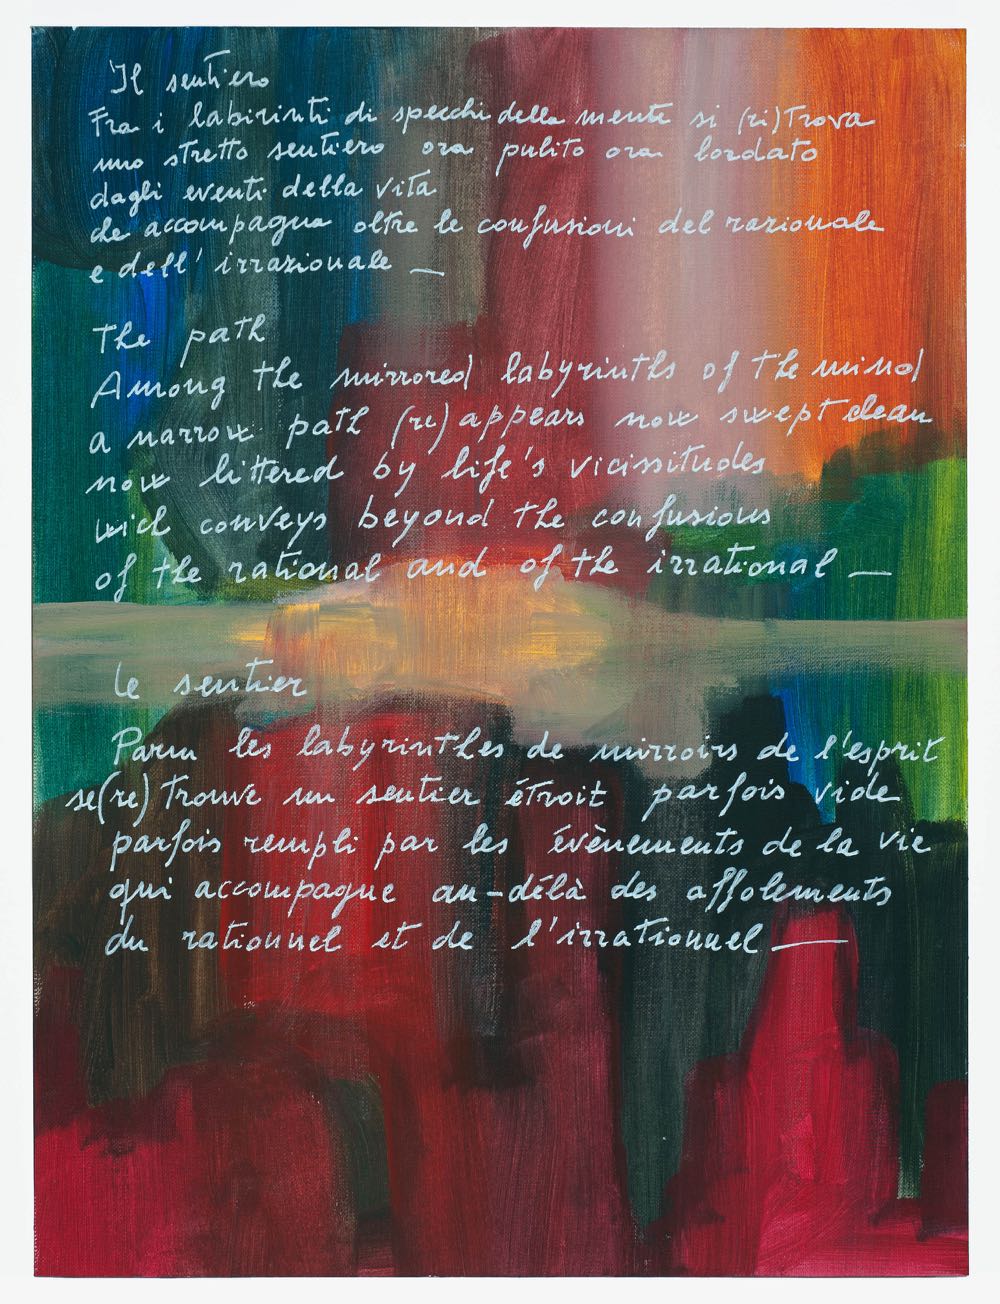 Il sentiero
Fra i labirinti di specchi della mente si (ri)trova
uno stretto sentiero ora pulito ora lordato
dagli eventi della vita
che accompagna oltre le confusioni del razionale
e dell' irrazionale —
The path
Among the mirrored labyrinths of the mind
a narrow path (re)appears now swept clean
now littered by life's vicissitudes
wich conveys beyond the confusions
of the rational and of the irrational —
le sentier
Parmi les labyrinthes de mirroirs de l'esprit
se(re)trouve un sentier étroit parfois vide
parfois rempli par les évènements de la vie
qui accompagne au-délà des affolements
du rationnel et de l'irrationnel —